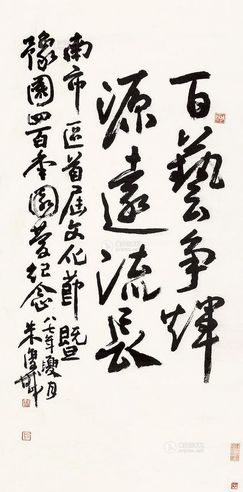 百藝争輝
源遠流長
南市區首届文化節暨
豫園四百年園慶纪念
八七年夏月
朱復戡